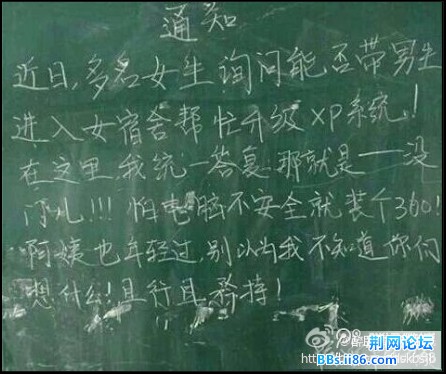 通知
近日,多名女生询问能否带男生
进入女宿舍帮忙升级XP系统!
在这里我统一答复.那就是——没
门儿!!!怕电脑不安全就装个360!
阿姨也年轻过,别以为我不知道你们
想什么!且行且矜持!
荆网论坛
BBs.ii86.com